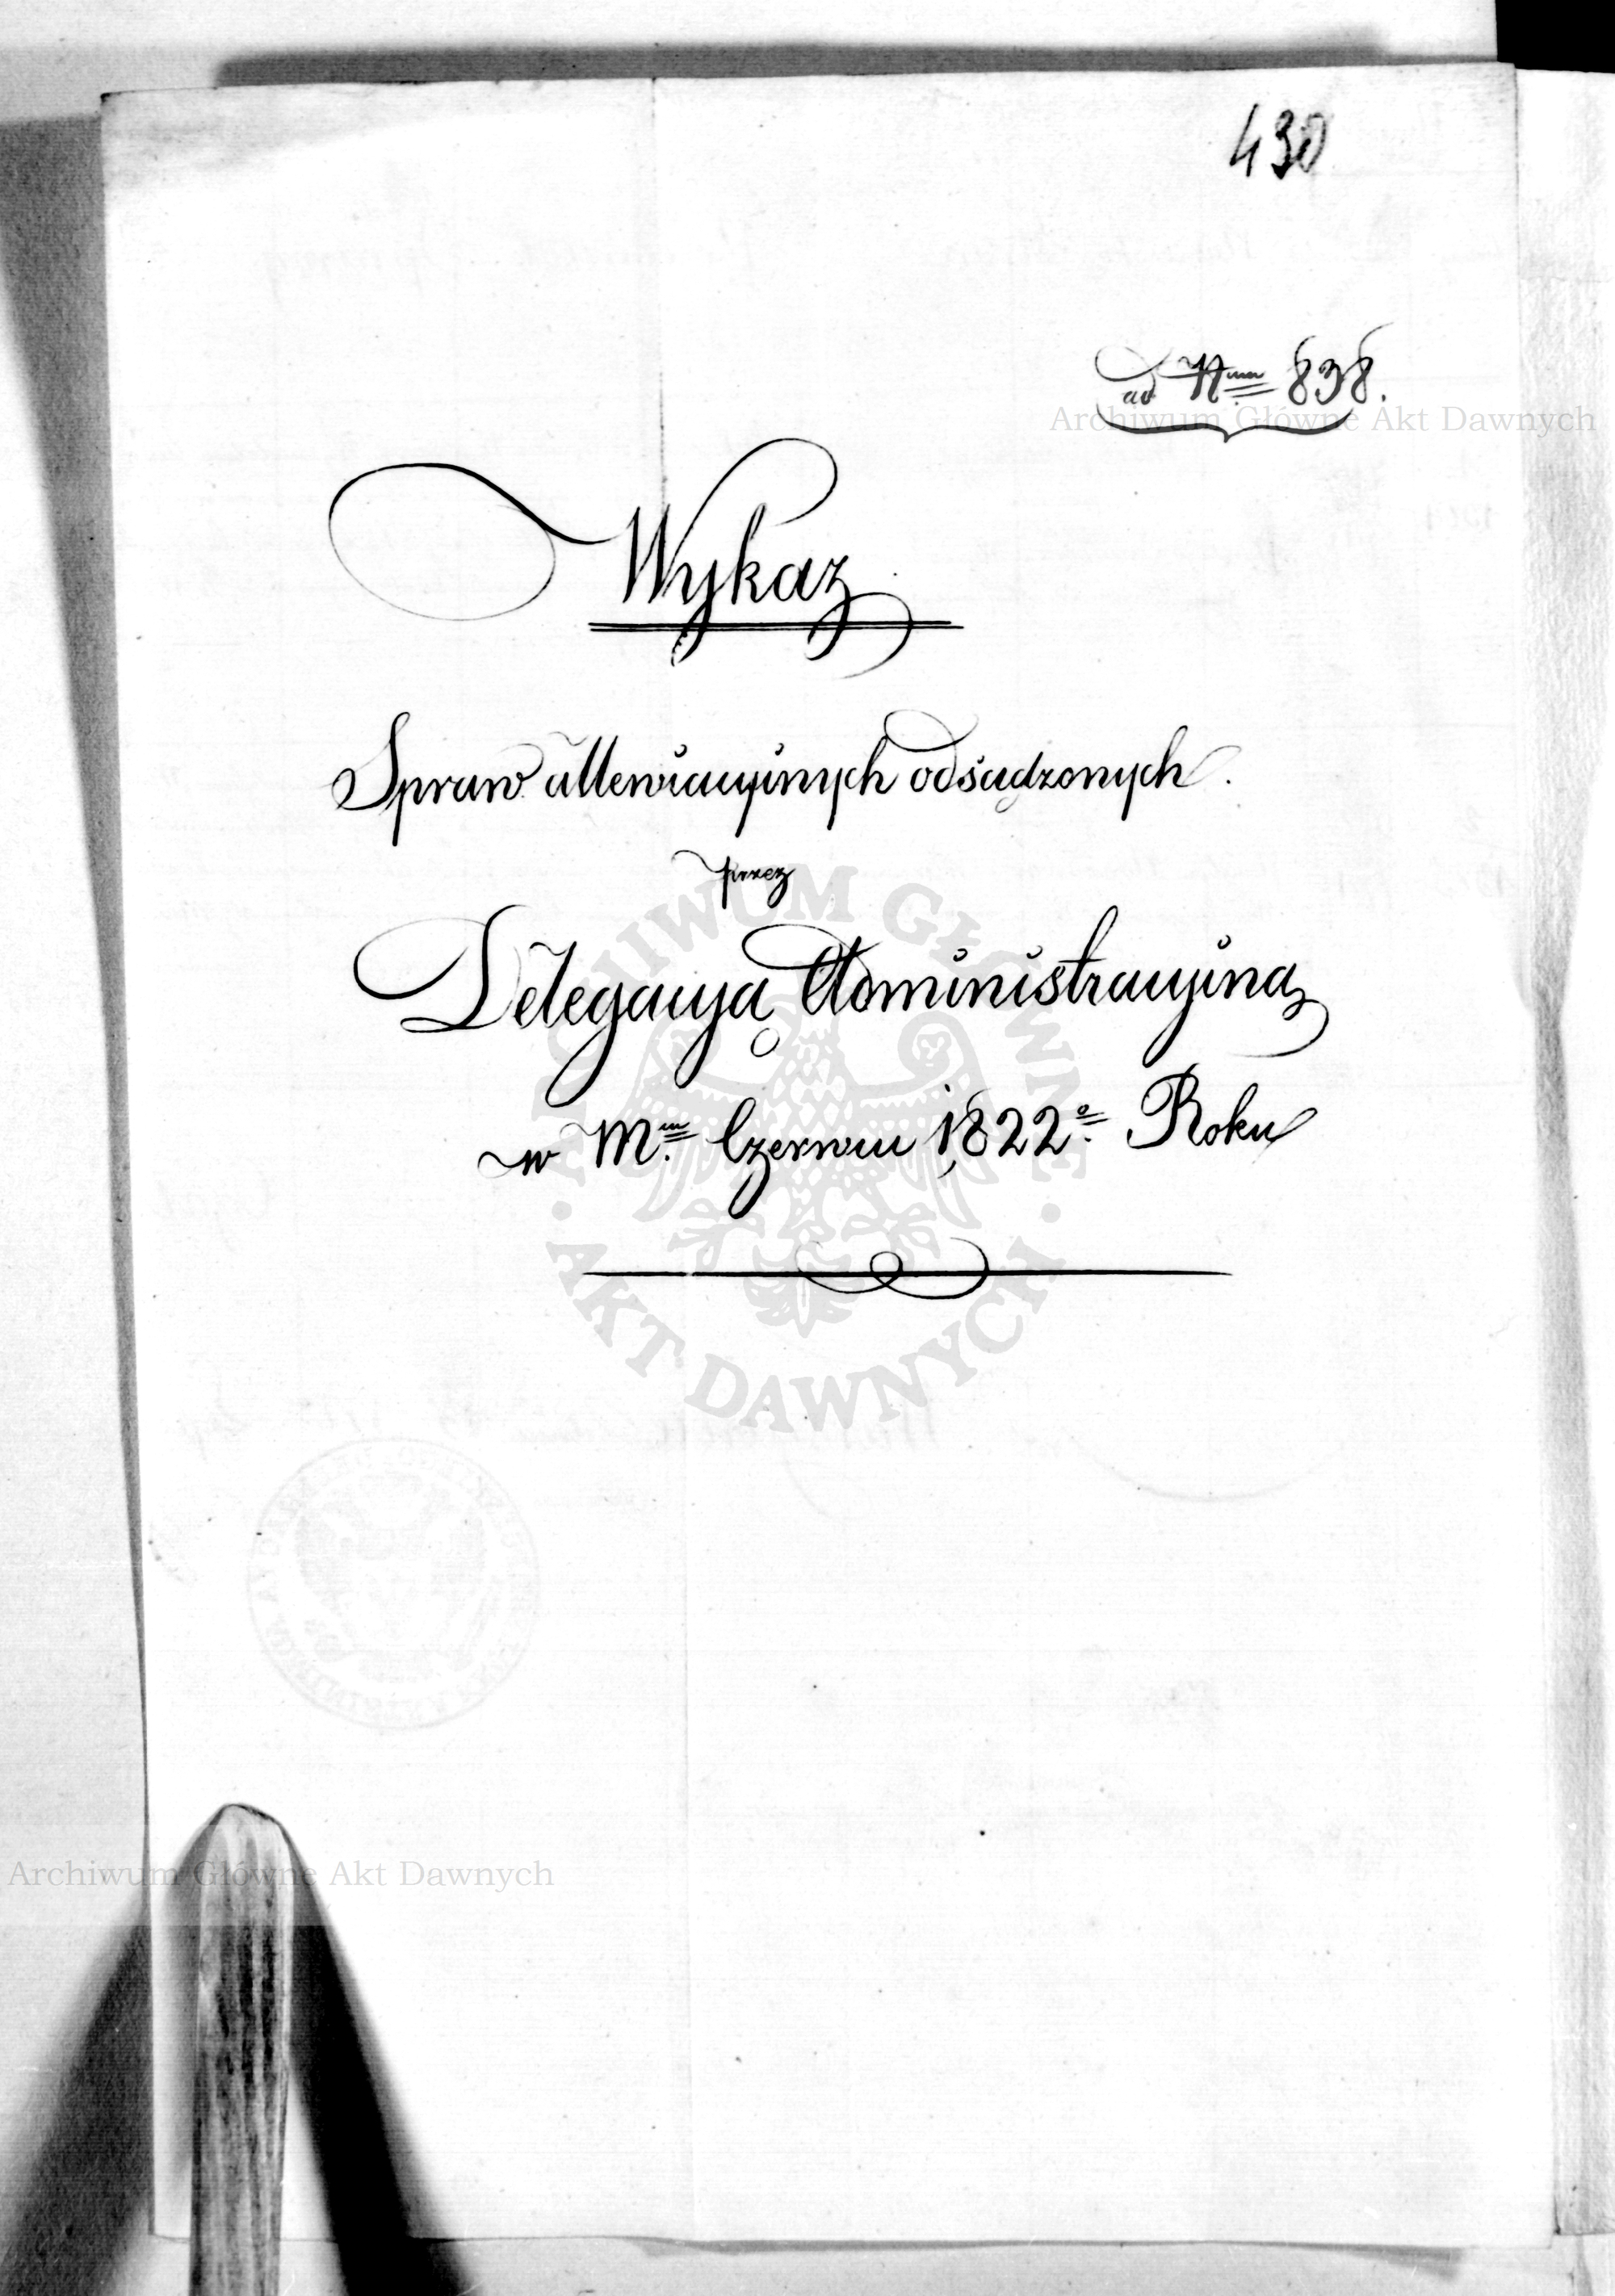 430
ad Num 838.
Archiwum Główne Akt Dawnych
Wykaz
Spraw allewiacyinych odsądzonych.
przez
Delegacyą Administracyiną
w Mcu Czerwcu 1822o. Roku
ARCHIWUM GŁÓWNE
· AKT DAWNYCH ·
Archiwum Główne Akt Dawnych